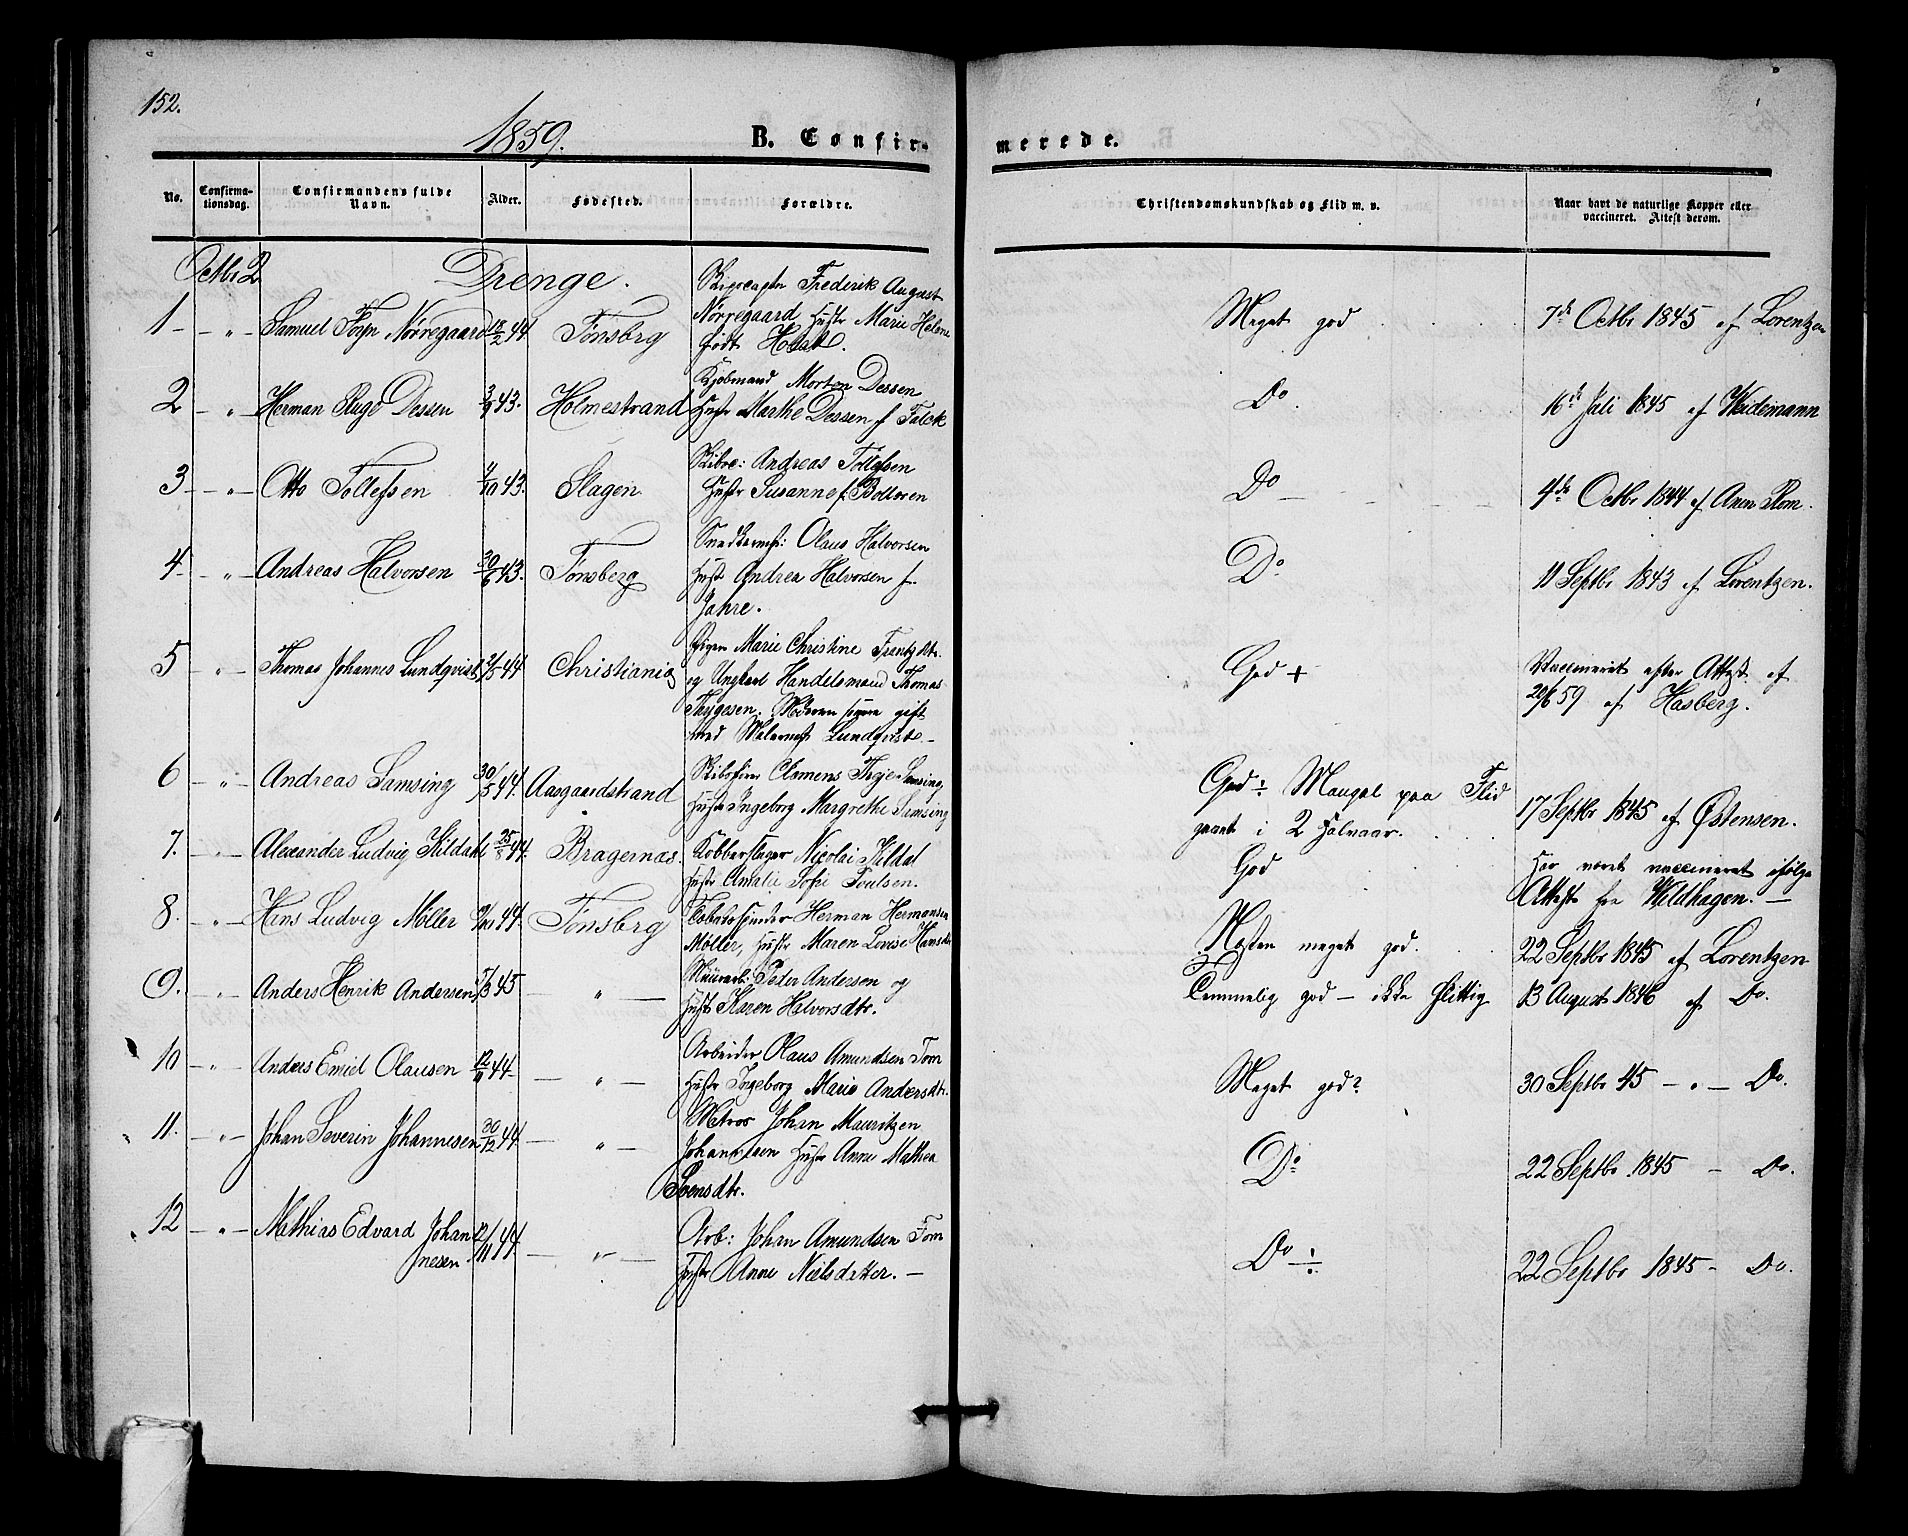 152.
1859.
B. Confir-
merede.
No.
Confirma-
tionsdag.
Confirmandens fulde
Navn.
Alder.
Fødested.
Forældre.
Christendomskundskab og Flid m. v.
Naar havt de naturlige Kopper eller
vaccineret. Attest derom.
Octbr 2 Drenge.
Frederik August
1 - - " Samuel Foyn Nørregaard 18/2 44 Tønsberg Nørregaard Hustr Marie Helene Meget god 7de Octbr 1845 af Lorentzen
født
Kjøbmand Morten Dessen
2 - " - Herman Dessen 3/9 43. Holmestrand Hustr Marthe Dessen f Falck Do. 16de Juli 1845 af Weidemann
Andreas Tollefsen
3 - - " - Otto Tollefsen 4/10 43. Slagen Hustr Susanne f. Bolleren Do 4de Octbr 1844 af
Snedkermst: Olaus Halvorsen
4 - - " - Andreas Halvorsen 30/6 43. Tønsberg Hustr Andrea Halvorsen f. Do 11 Septbr 1843 af Lorentzen.
Jahre.
Pigen Marie Christine Frantzdtr.
5 - " - Thomas Johannes Lundqvist 2/5 44 Christiania og Ungkarl Handelsmand Thomas God + Vaccineret efter Attest af
Thygesen. Moderen senere gift 20/6 59 af Hasberg.
med Malermst Lundqvist -
6 - " - Andreas Samsing 30/5 44. Aasgaardstrand Clemens Thyje Samsing God ÷ Mangel paa Flid
Hustr Ingeborg Margrethe Samsing i 2 Halvaar. 17 Septbr 1845 af Østensen.
7. - " - Alexander Ludvig Kildahl 25/8 44. Bragernæs. Kobberslager Nicolai Kildal God Har været vaccineret ifølge
Hustr Amalie Sofie Poulsen. Attest fra Wildhagen. -
8. - " - Hans Ludvig Møller 9/10 44. Tønsberg Tobakspinder Herman Hermansen
Møller, Hustr Maren Lovise Hansdtr Næsten meget god. 22 Septbr 1845 af Lorentzen
9. - " - Anders Henrik Andersen 7/3 45 - " - Peder Andersen og Temmelig god - ikke flittig 13 August 1846 af Do.
Hustr Karen Halvorsdtr.
10 - " - Andreas Emiel Olausen 12/11 44 - " - Arbeider Olaus Amundsen Tom
Hustr Ingeborg Marie Andersdtr. Meget god? 30 Septbr 45 - " - Do.
11. - " - Johan Severin Johannesen 30/12 44 - " - Matros Johan Mauritzen
Johannesen Hustr Anne Mathea Do 22 Septbr 1845 - Do.
Svensdtr.
12 - " - Mathias Edvard Johan 12/11 44 - " - Arb: Johan Amundsen Tom Do ÷
nesen. Hustr Anne Nielsdatter. - 22 Septbr 1845 - Do.